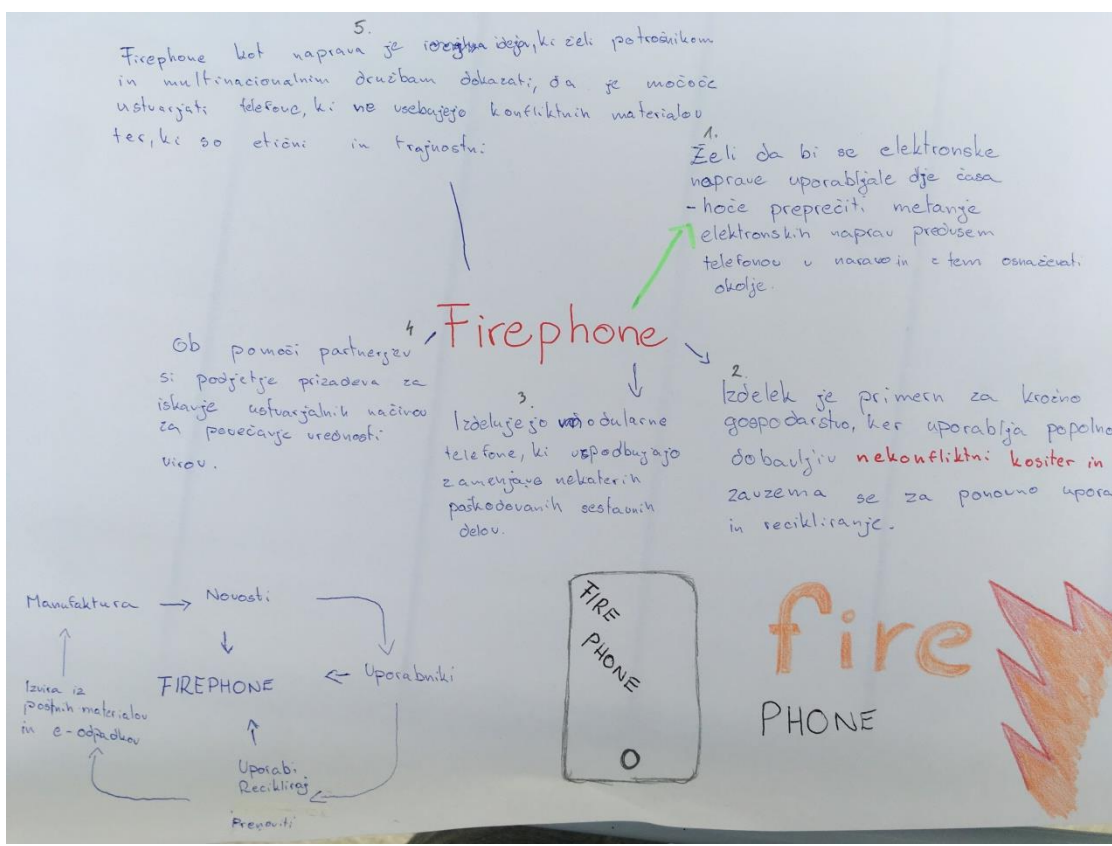 5.
Firephone kot naprava je ideja, ki želi potrošnikom
in multinacionalnim družbam dokazati, da je močoče
ustvarjati telefone, ki ne vsebujejo konfliktnih materialov
ter, ki so etični in trajnostni.
1.
Želi da bi se elektronske
naprave uporabljale dje časa
- hoče preprečiti metanje
elektronskih naprav predvsem
telefonov v naravo in s tem osnaževati
okolje.
Firephone
4
Ob pomoči partnerjev
si podjetje prizadeva za
iskavje ustvarjalnih načinov
za povečavje vrednosti
virov.
3.
Izdelujejo modularne
telefone, ki vzpodbujajo
zamenjavo nekaterih
poškodovanih sestavnih
delov.
2.
Izdelek je primern za krožno
gospodarstvo, ker uporablja popolno
dobavljiv nekonfliktni kositer in
zavzema se za ponovno upora
in recikliranje.
Manufaktura
Novosti
FIREPHONE
Uporabniki
Izvira iz
poštnih materialov
in e-odpadkov
Uporabi
Recikliraj
Prenoviti
FIRE
PHONE
fire
PHONE